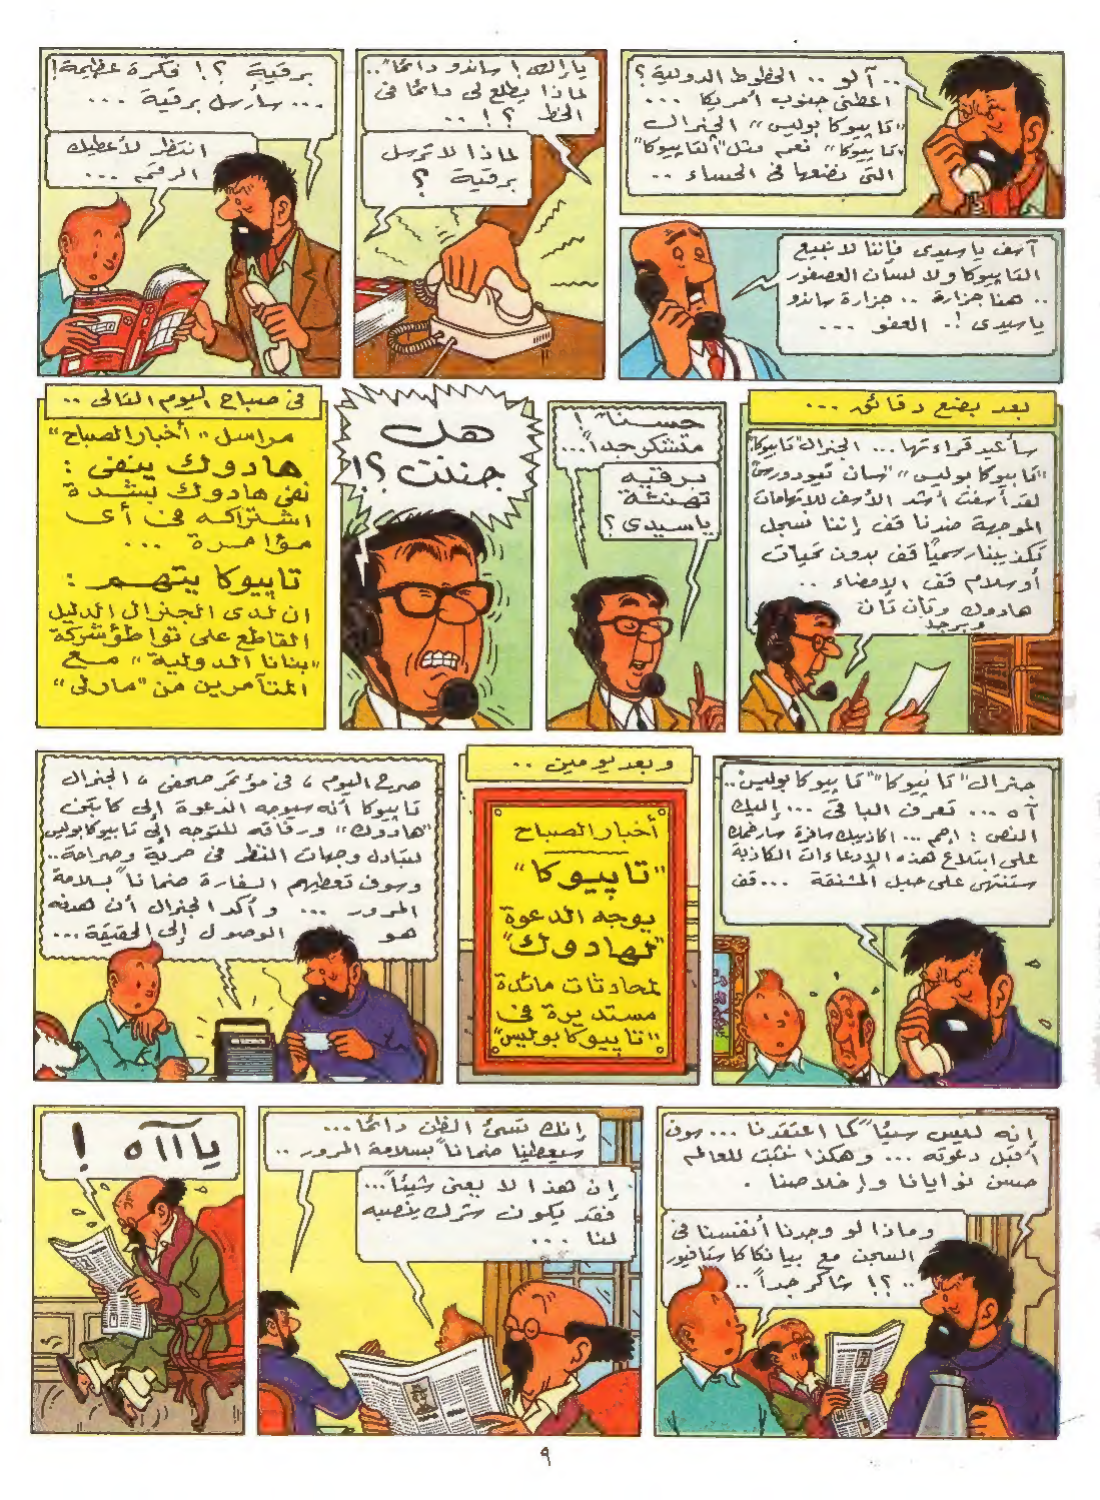 .. آلو .. الخطوط الدولية ؟
اعطنى جنوب أمريكا ...
"تاپيوكا بوليس" الجنرال
"تاپيوكا" نعم مثل "التاپيوكا"
التى نضعها فى الحساء ..
آسف يا سيدى فإننا لا نبيع
التاپيوكا ولا لسان العصفور
.. هنا جزارة .. جزارة ساندو
يا سيدى !. العفو ...
يا إلهى ! ساندو دائمًا ..
لماذا يطلع لى دائمًا فى
الخط ؟ ! ..
لماذا لا ترسل
برقية ؟
برقية ؟ ! فكرة عظيمة !
... سأرسل برقية ...
انتظر لأعطيك
الرقم ...
بعد بضع دقائق ...
سأعيد قراءتها ... الجنرال "تاپيوكا"
"تاپيوكا بوليس" "سان تيودورس"
لقد أسفت أشد الأسف للإتهامات
الموجهة ضدنا قف إننا نسجل
تكذيبنا رسميًا قف بدون تحيات
أو سلام قف الإمضاء ..
هادوك وتان تان
وبرجل
حسنًا !
متشكر جدًا ...
برقية
تهنئة
يا سيدى ؟
هل
جننت ؟!
فى صباح اليوم التالى ..
مراسل "أخبار الصباح"
هادوك ينفى :
نفى هادوك بشدة
اشتراكه فى أى
مؤامرة ...
تاپيوكا يتهم :
ان لدى الجنرال الدليل
القاطع على تواطؤ شركة
"بنانا الدولية" مع
المتآمرين من "مارلى"
جنرال "تاپيوكا" "تاپيوكا بوليس" ..
آه ... تعرف الباقى ... إليك
النص : إحم ... اكاذيبك سافرة سأرغمك
على ابتلاع هذه الإدعاءات الكاذبة
ستنتهى على حبل المشنقة ... قف
وبعد يومين ..
أخبار الصباح
"تاپيوكا"
يوجه الدعوة
"لهادوك"
لمحادثات مائدة
مستديرة فى
"تاپيوكا بوليس"
صرح اليوم ، فى مؤتمر صحفى ، الجنرال
تاپيوكا أنه سيوجه الدعوة إلى كابتن
"هادوك" ورفاقه للتوجه إلى تاپيوكا بوليس
لتبادل وجهات النظر فى حرية وصراحة ..
وسوف تعطيهم السفارة ضمانًا بسلامة
المرور ... وأكد الجنرال أن هدفه
هو الوصول إلى الحقيقة ...
إنه ليس سيئًا كما اعتقدنا ... سوف
أقبل دعوته ... وهكذا نثبت للعالم
حسن نوايانا وإخلاصنا .
وماذا لو وجدنا أنفسنا فى
السجن مع بيانكا كاستافيور
.. ؟! شاكر جدًا ..
إنك تسئ الظن دائمًا ...
سيعطينا ضمانًا بسلامة المرور ..
إن هذا لا يعنى شيئًا ...
فقد يكون شرك ينصبه
لنا ...
يا آآه !
٩